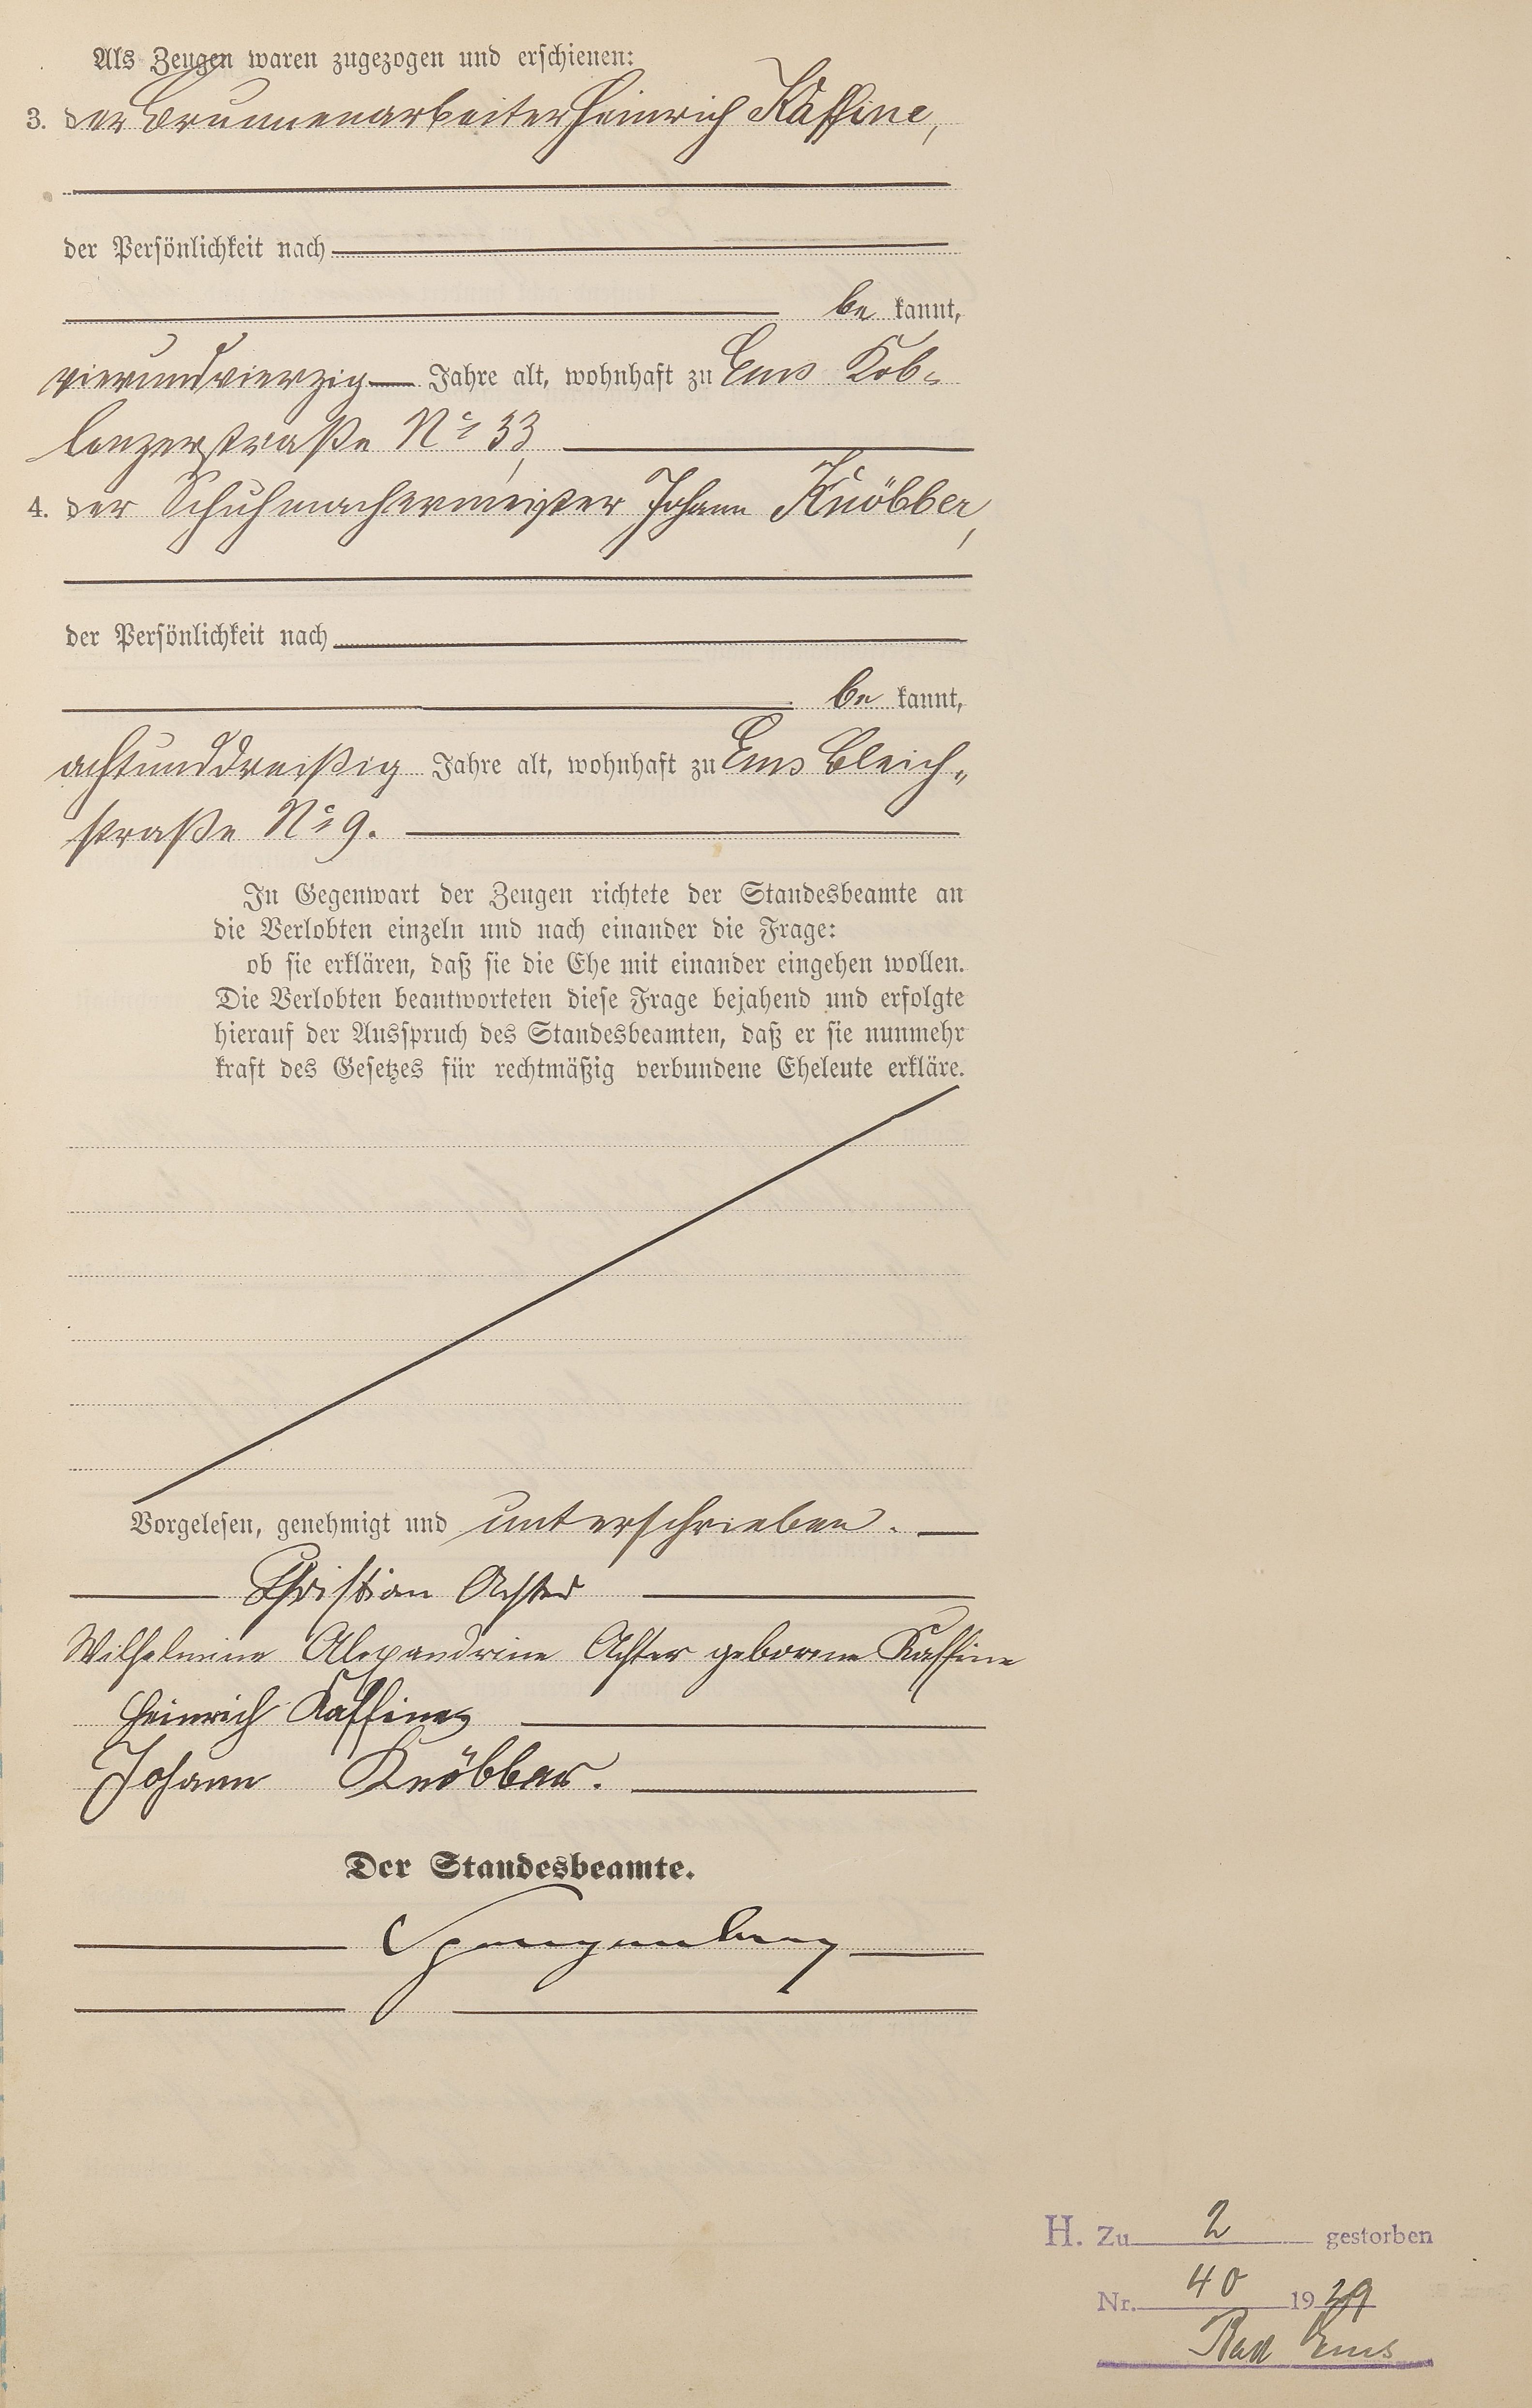 Als Zeugen waren zugezogen und erschienen:
3. der Brunnenarbeiter Heinrich Kaffine,
der Persönlichkeit nach
be kannt,
vierundvierzig Jahre alt, wohnhaft zu Ems Kob-
lenzerstraße No 33,
4. der Schuhmachermeister Johann Knöbber,
der Persönlichkeit nach
be kannt,
achtunddreißig Jahre alt, wohnhaft zu Ems Bleich-
straße No 9.
In Gegenwart der Zeugen richtete der Standesbeamte an
die Verlobten einzeln und nach einander die Frage:
ob sie erklären, daß sie die Ehe mit einander eingehen wollen.
Die Verlobten beantworteten diese Frage bejahend und erfolgte
hierauf der Ausspruch des Standesbeamten, daß er sie nunmehr
kraft des Gesetzes für rechtmäßig verbundene Eheleute erkläre.
Vorgelesen, genehmigt und unterschrieben.
Christian Achter
Wilhelmine Alexandrine Achter geborene Kaffine
Heinrich Kaffine
Johann Knöbber.
Der Standesbeamte.
Spangenberg
H. Zu 2 gestorben
Nr. 40 1929
Bad Ems